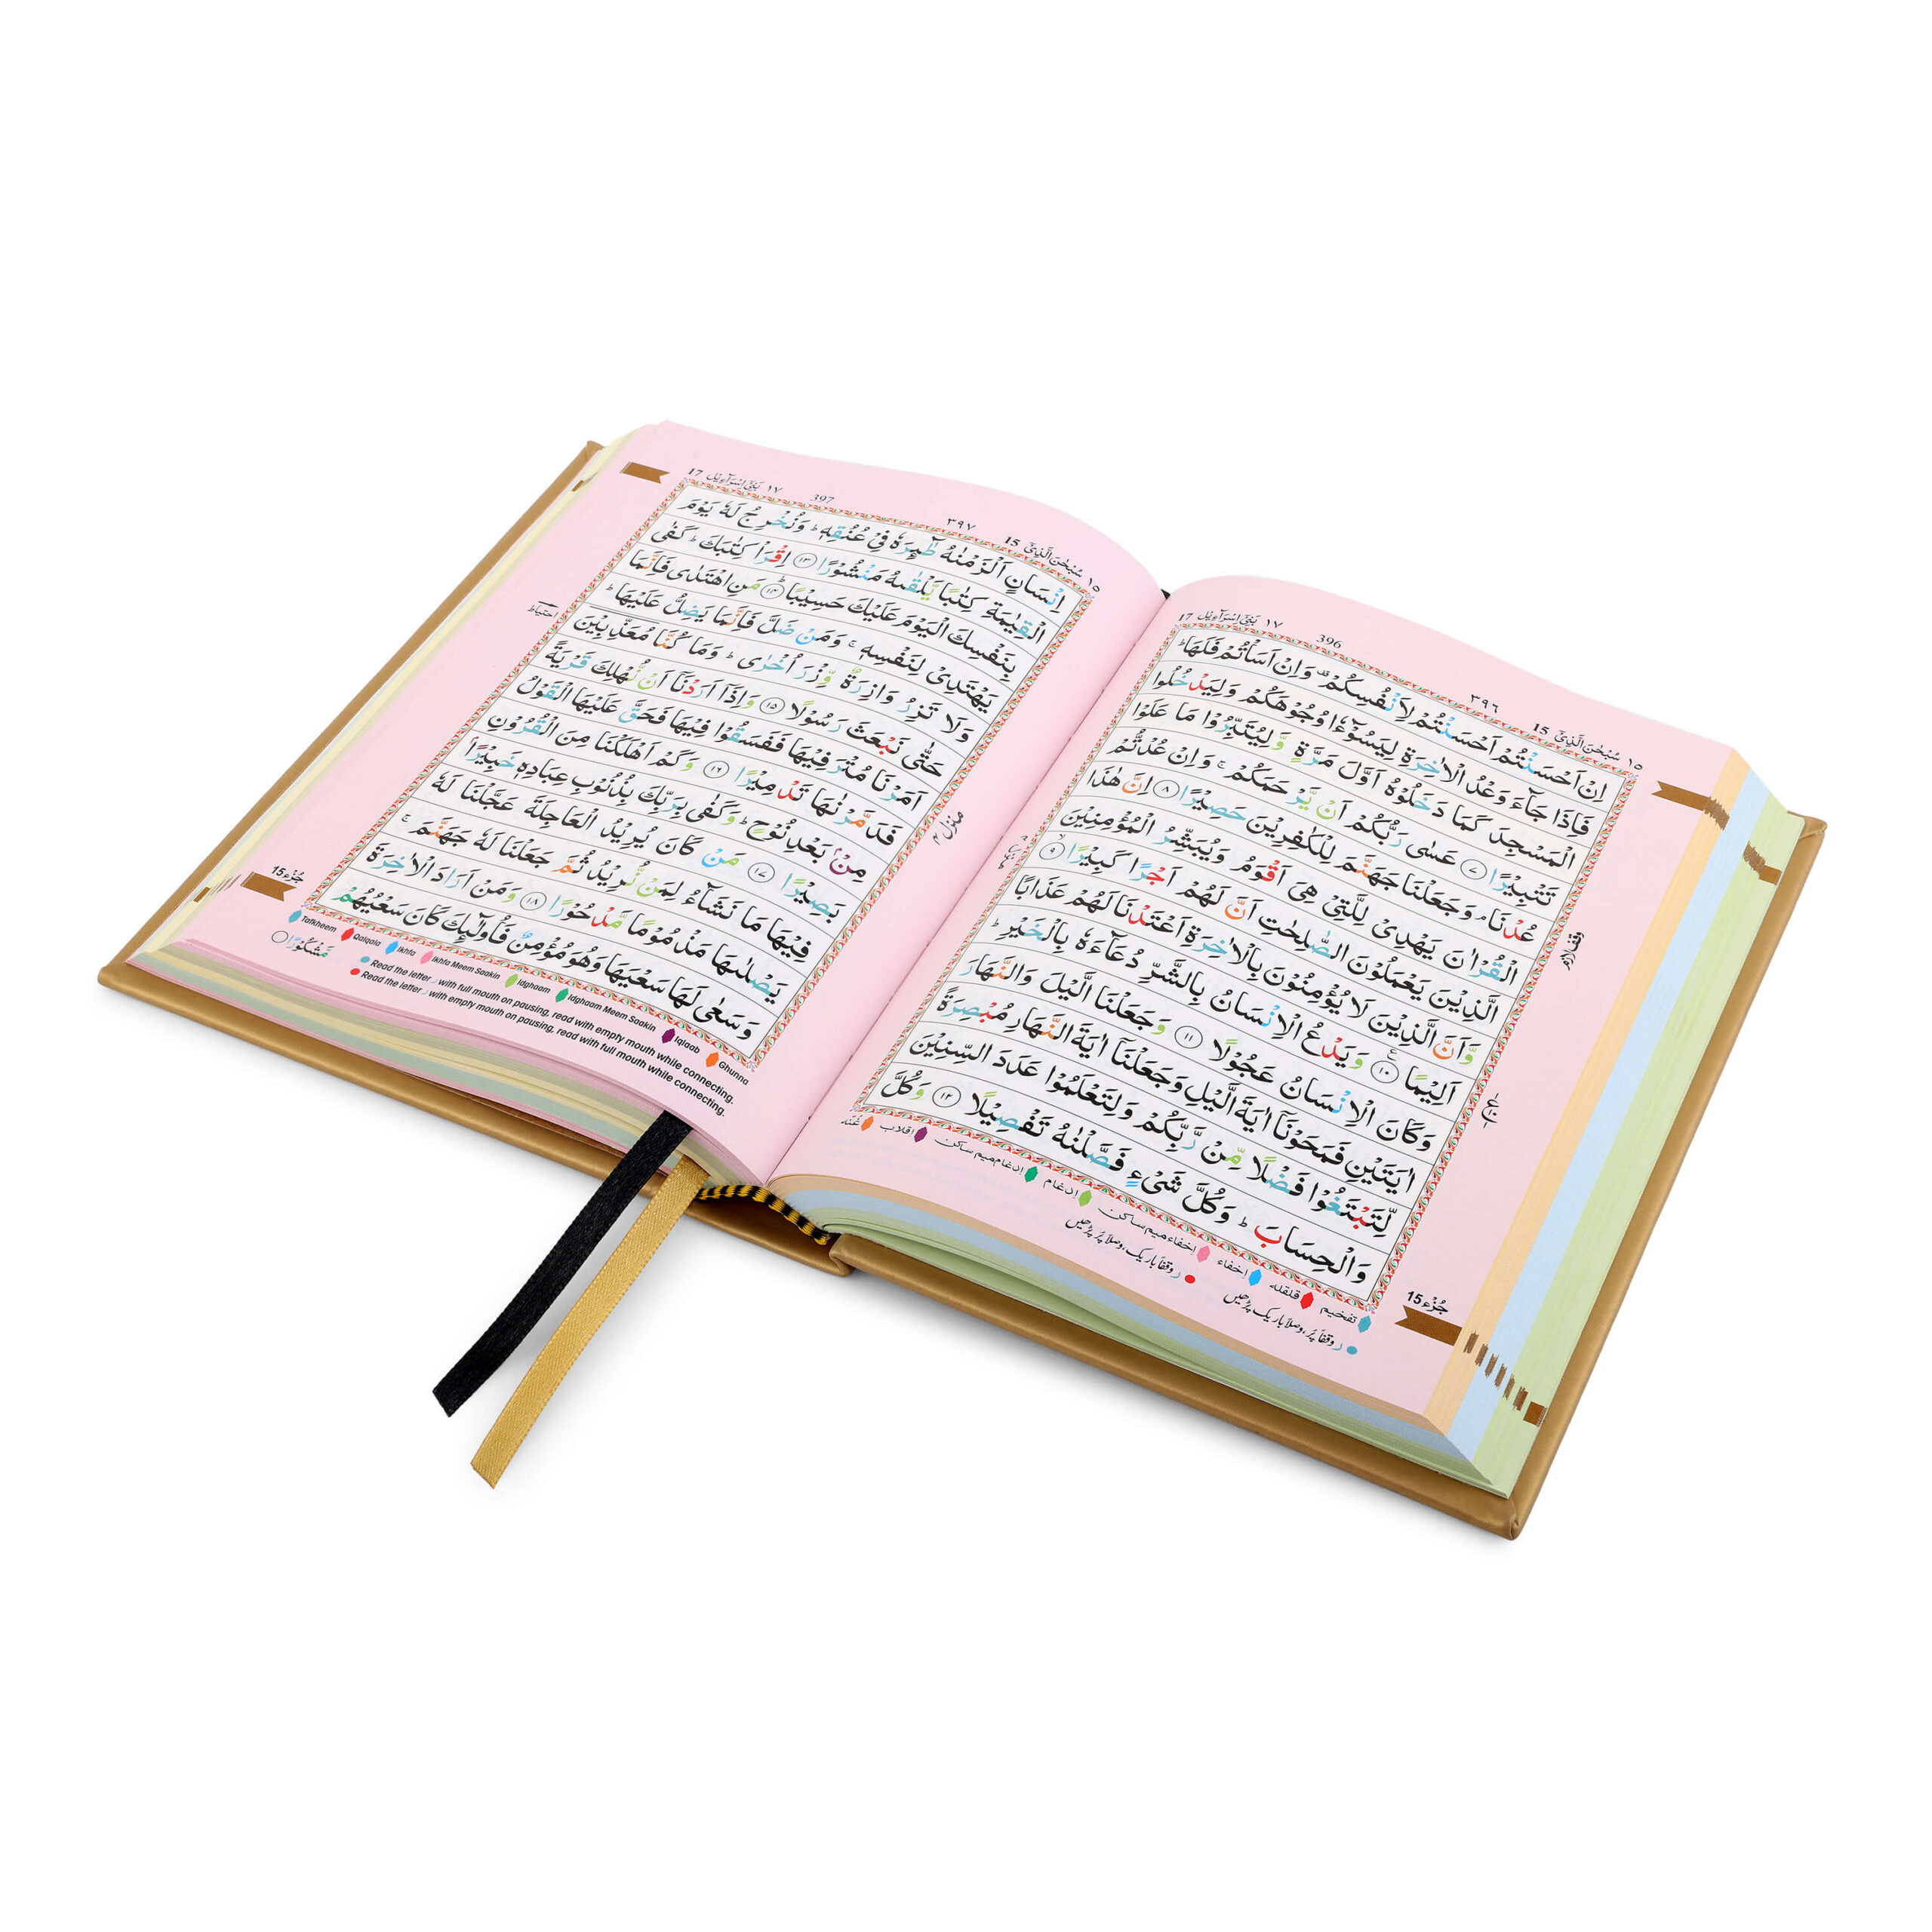 ١٥ سُبْحٰنَ الَّذِيْٓ 15
٣٩٦
396
١٧ بَنِيْٓ اِسْرَآءِيْل 17
اِنْ اَحْسَنْتُمْ اَحْسَنْتُمْ لِاَنْفُسِكُمْ ۫ وَاِنْ اَسَاْتُمْ فَلَهَا ؕ
فَاِذَا جَآءَ وَعْدُ الْاٰخِرَةِ لِيَسُوْٓءٗا وُجُوْهَكُمْ وَلِيَدْخُلُوا
الْمَسْجِدَ كَمَا دَخَلُوْهُ اَوَّلَ مَرَّةٍ وَّلِيُتَبِّرُوْا مَا عَلَوْا
تَتْبِيْرًا ﴿٧﴾ عَسٰى رَبُّكُمْ اَنْ يَّرْحَمَكُمْ ۚ وَاِنْ عُدْتُّمْ
عُدْنَا ۘ وَجَعَلْنَا جَهَنَّمَ لِلْكٰفِرِيْنَ حَصِيْرًا ﴿٨﴾ اِنَّ هٰذَا
الْقُرْاٰنَ يَهْدِيْ لِلَّتِيْ هِيَ اَقْوَمُ وَيُبَشِّرُ الْمُؤْمِنِيْنَ
الَّذِيْنَ يَعْمَلُوْنَ الصّٰلِحٰتِ اَنَّ لَهُمْ اَجْرًا كَبِيْرًا ﴿٩﴾
وَّاَنَّ الَّذِيْنَ لَا يُؤْمِنُوْنَ بِالْاٰخِرَةِ اَعْتَدْنَا لَهُمْ عَذَابًا
اَلِيْمًا ﴿١٠﴾ وَيَدْعُ الْاِنْسَانُ بِالشَّرِّ دُعَآءَهٗ بِالْخَيْرِ ؕ
وَكَانَ الْاِنْسَانُ عَجُوْلًا ﴿١١﴾ وَجَعَلْنَا الَّيْلَ وَالنَّهَارَ
اٰيَتَيْنِ فَمَحَوْنَآ اٰيَةَ الَّيْلِ وَجَعَلْنَآ اٰيَةَ النَّهَارِ مُبْصِرَةً
لِّتَبْتَغُوْا فَضْلًا مِّنْ رَّبِّكُمْ وَلِتَعْلَمُوْا عَدَدَ السِّنِيْنَ
وَالْحِسَابَ ؕ وَكُلَّ شَيْءٍ فَصَّلْنٰهُ تَفْصِيْلًا ﴿١٢﴾ وَكُلَّ
وقف لازم
جُزْء 15
تفخیم قلقله اِخفاء اِخفاء میم ساکن ادغام ادغام میم ساکن اقلاب غُنّه
ر وقفاً پُر، وصلاً باریک پڑھیں
ر وقفاً باریک، وصلاً پُر پڑھیں
١٥ سُبْحٰنَ الَّذِيْٓ 15
٣٩٧
397
١٧ بَنِيْٓ اِسْرَآءِيْل 17
اِنْسَانٍ اَلْزَمْنٰهُ طٰٓئِرَهٗ فِيْ عُنُقِهٖ ؕ وَنُخْرِجُ لَهٗ يَوْمَ
الْقِيٰمَةِ كِتٰبًا يَّلْقٰىهُ مَنْشُوْرًا ﴿١٣﴾ اِقْرَاْ كِتٰبَكَ ؕ كَفٰى
بِنَفْسِكَ الْيَوْمَ عَلَيْكَ حَسِيْبًا ؕ ﴿١٤﴾ مَنِ اهْتَدٰى فَاِنَّمَا
يَهْتَدِيْ لِنَفْسِهٖ ۚ وَمَنْ ضَلَّ فَاِنَّمَا يَضِلُّ عَلَيْهَا ؕ
وَلَا تَزِرُ وَازِرَةٌ وِّزْرَ اُخْرٰى ؕ وَمَا كُنَّا مُعَذِّبِيْنَ
حَتّٰى نَبْعَثَ رَسُوْلًا ﴿١٥﴾ وَاِذَآ اَرَدْنَآ اَنْ نُّهْلِكَ قَرْيَةً
اَمَرْنَا مُتْرَفِيْهَا فَفَسَقُوْا فِيْهَا فَحَقَّ عَلَيْهَا الْقَوْلُ
فَدَمَّرْنٰهَا تَدْمِيْرًا ﴿١٦﴾ وَكَمْ اَهْلَكْنَا مِنَ الْقُرُوْنِ
مِنْۢ بَعْدِ نُوْحٍ ؕ وَكَفٰى بِرَبِّكَ بِذُنُوْبِ عِبَادِهٖ خَبِيْرًۢا
بَصِيْرًا ﴿١٧﴾ مَنْ كَانَ يُرِيْدُ الْعَاجِلَةَ عَجَّلْنَا لَهٗ
فِيْهَا مَا نَشَآءُ لِمَنْ نُّرِيْدُ ثُمَّ جَعَلْنَا لَهٗ جَهَنَّمَ ۚ
يَصْلٰىهَا مَذْمُوْمًا مَّدْحُوْرًا ﴿١٨﴾ وَمَنْ اَرَادَ الْاٰخِرَةَ
وَسَعٰى لَهَا سَعْيَهَا وَهُوَ مُؤْمِنٌ فَاُولٰٓئِكَ كَانَ سَعْيُهُمْ
مَّشْكُوْرًا
احتیاط
منزل ٤
جُزْء 15
Tafkheem Qalqala Ikhfa Ikhfa Meem Saakin Idghaam Idghaam Meem Saakin Iqlaab Ghunna
Read the letter ر with full mouth on pausing, read with empty mouth while connecting.
Read the letter ر with empty mouth on pausing, read with full mouth while connecting.